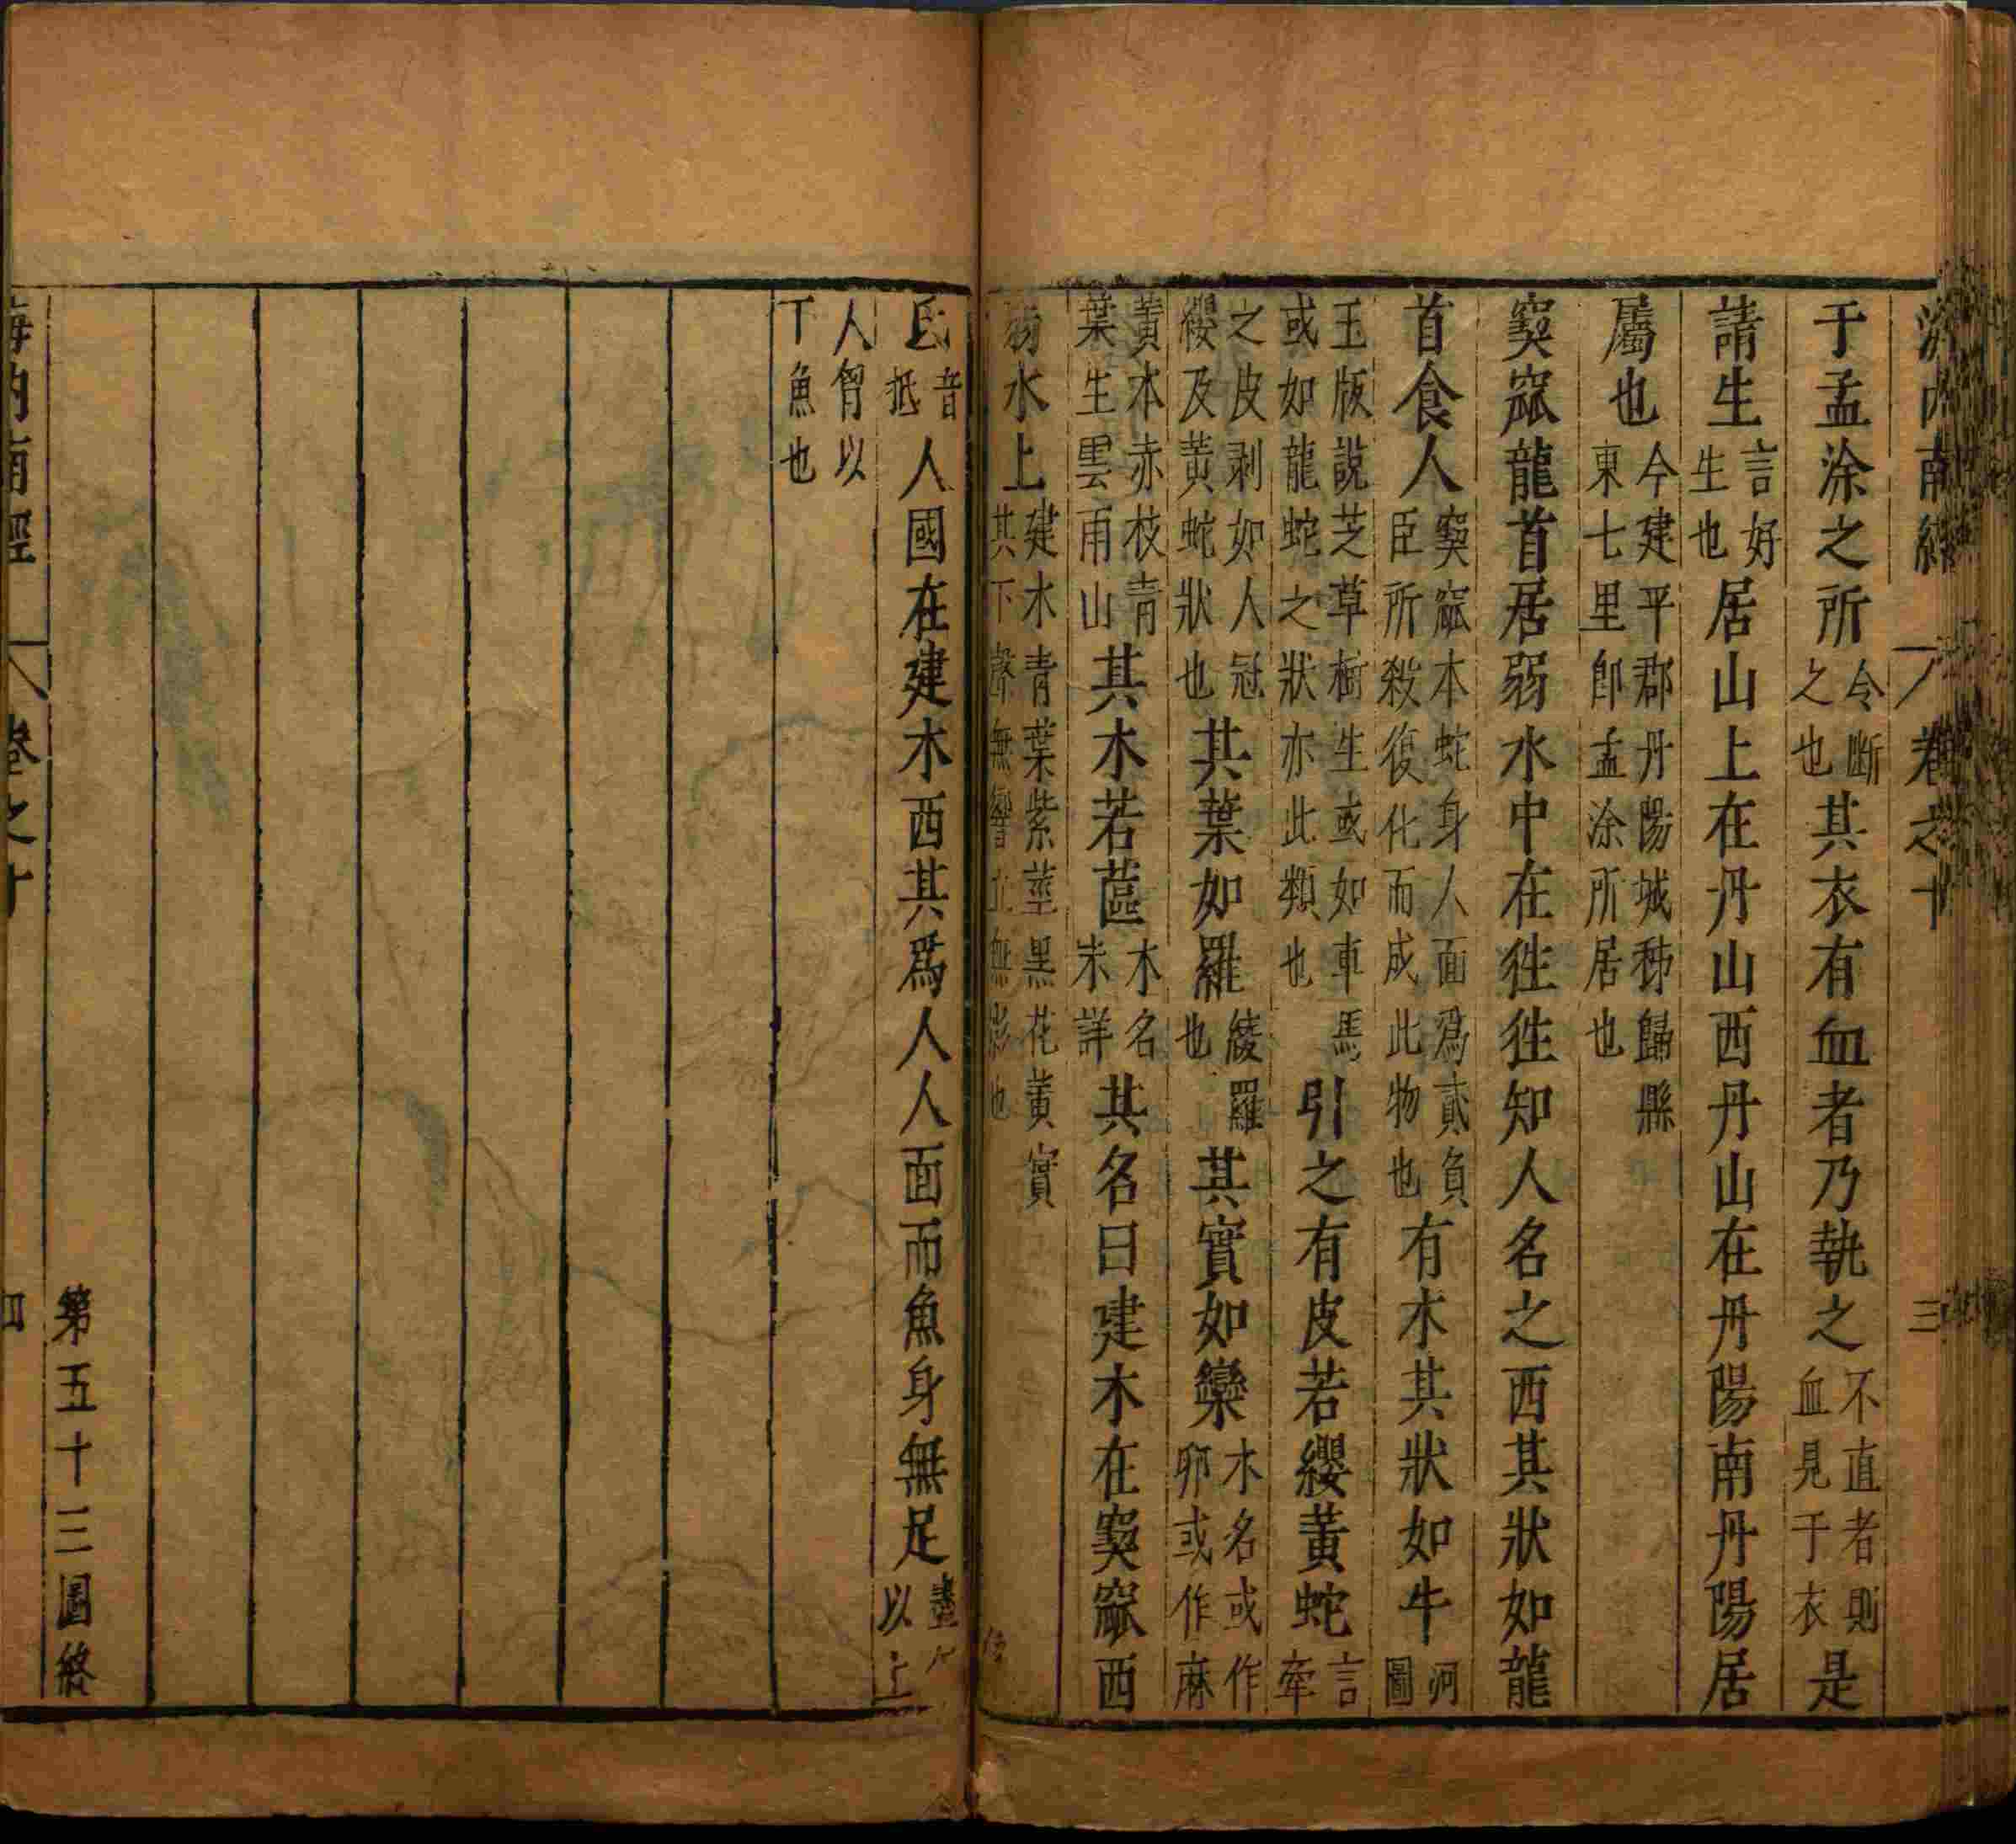 海內南經 卷之十 三
于孟涂之所令斷之也其衣有血者乃執之不直者則血見于衣是
請生言好生也居山上在丹山西丹山在丹陽南丹陽居
屬也今建平郡丹陽城秭歸縣東七里即孟涂所居也
窫窳龍首居弱水中在狌狌知人名之西其狀如龍
首食人窫窳本蛇身人面爲貳負臣所殺復化而成此物也有木其狀如牛河圖
玉版說芝草樹生或如車馬或如龍蛇之狀亦此類也引之有皮若纓黃蛇言牽
之皮剥如人冠纓及黃蛇狀也其葉如羅綾羅也其實如欒木名或作卵或作麻
黃本赤枝青葉生雲雨山其木若蓲木名未詳其名曰建木在窫窳西
弱水上建木青葉紫莖黑花黃實其下聲無響立無影也
氐音抵人國在建木西其爲人人面而魚身無足盡以上
人胷以丅魚也
第五十三圖終
海內南經 卷之十 四